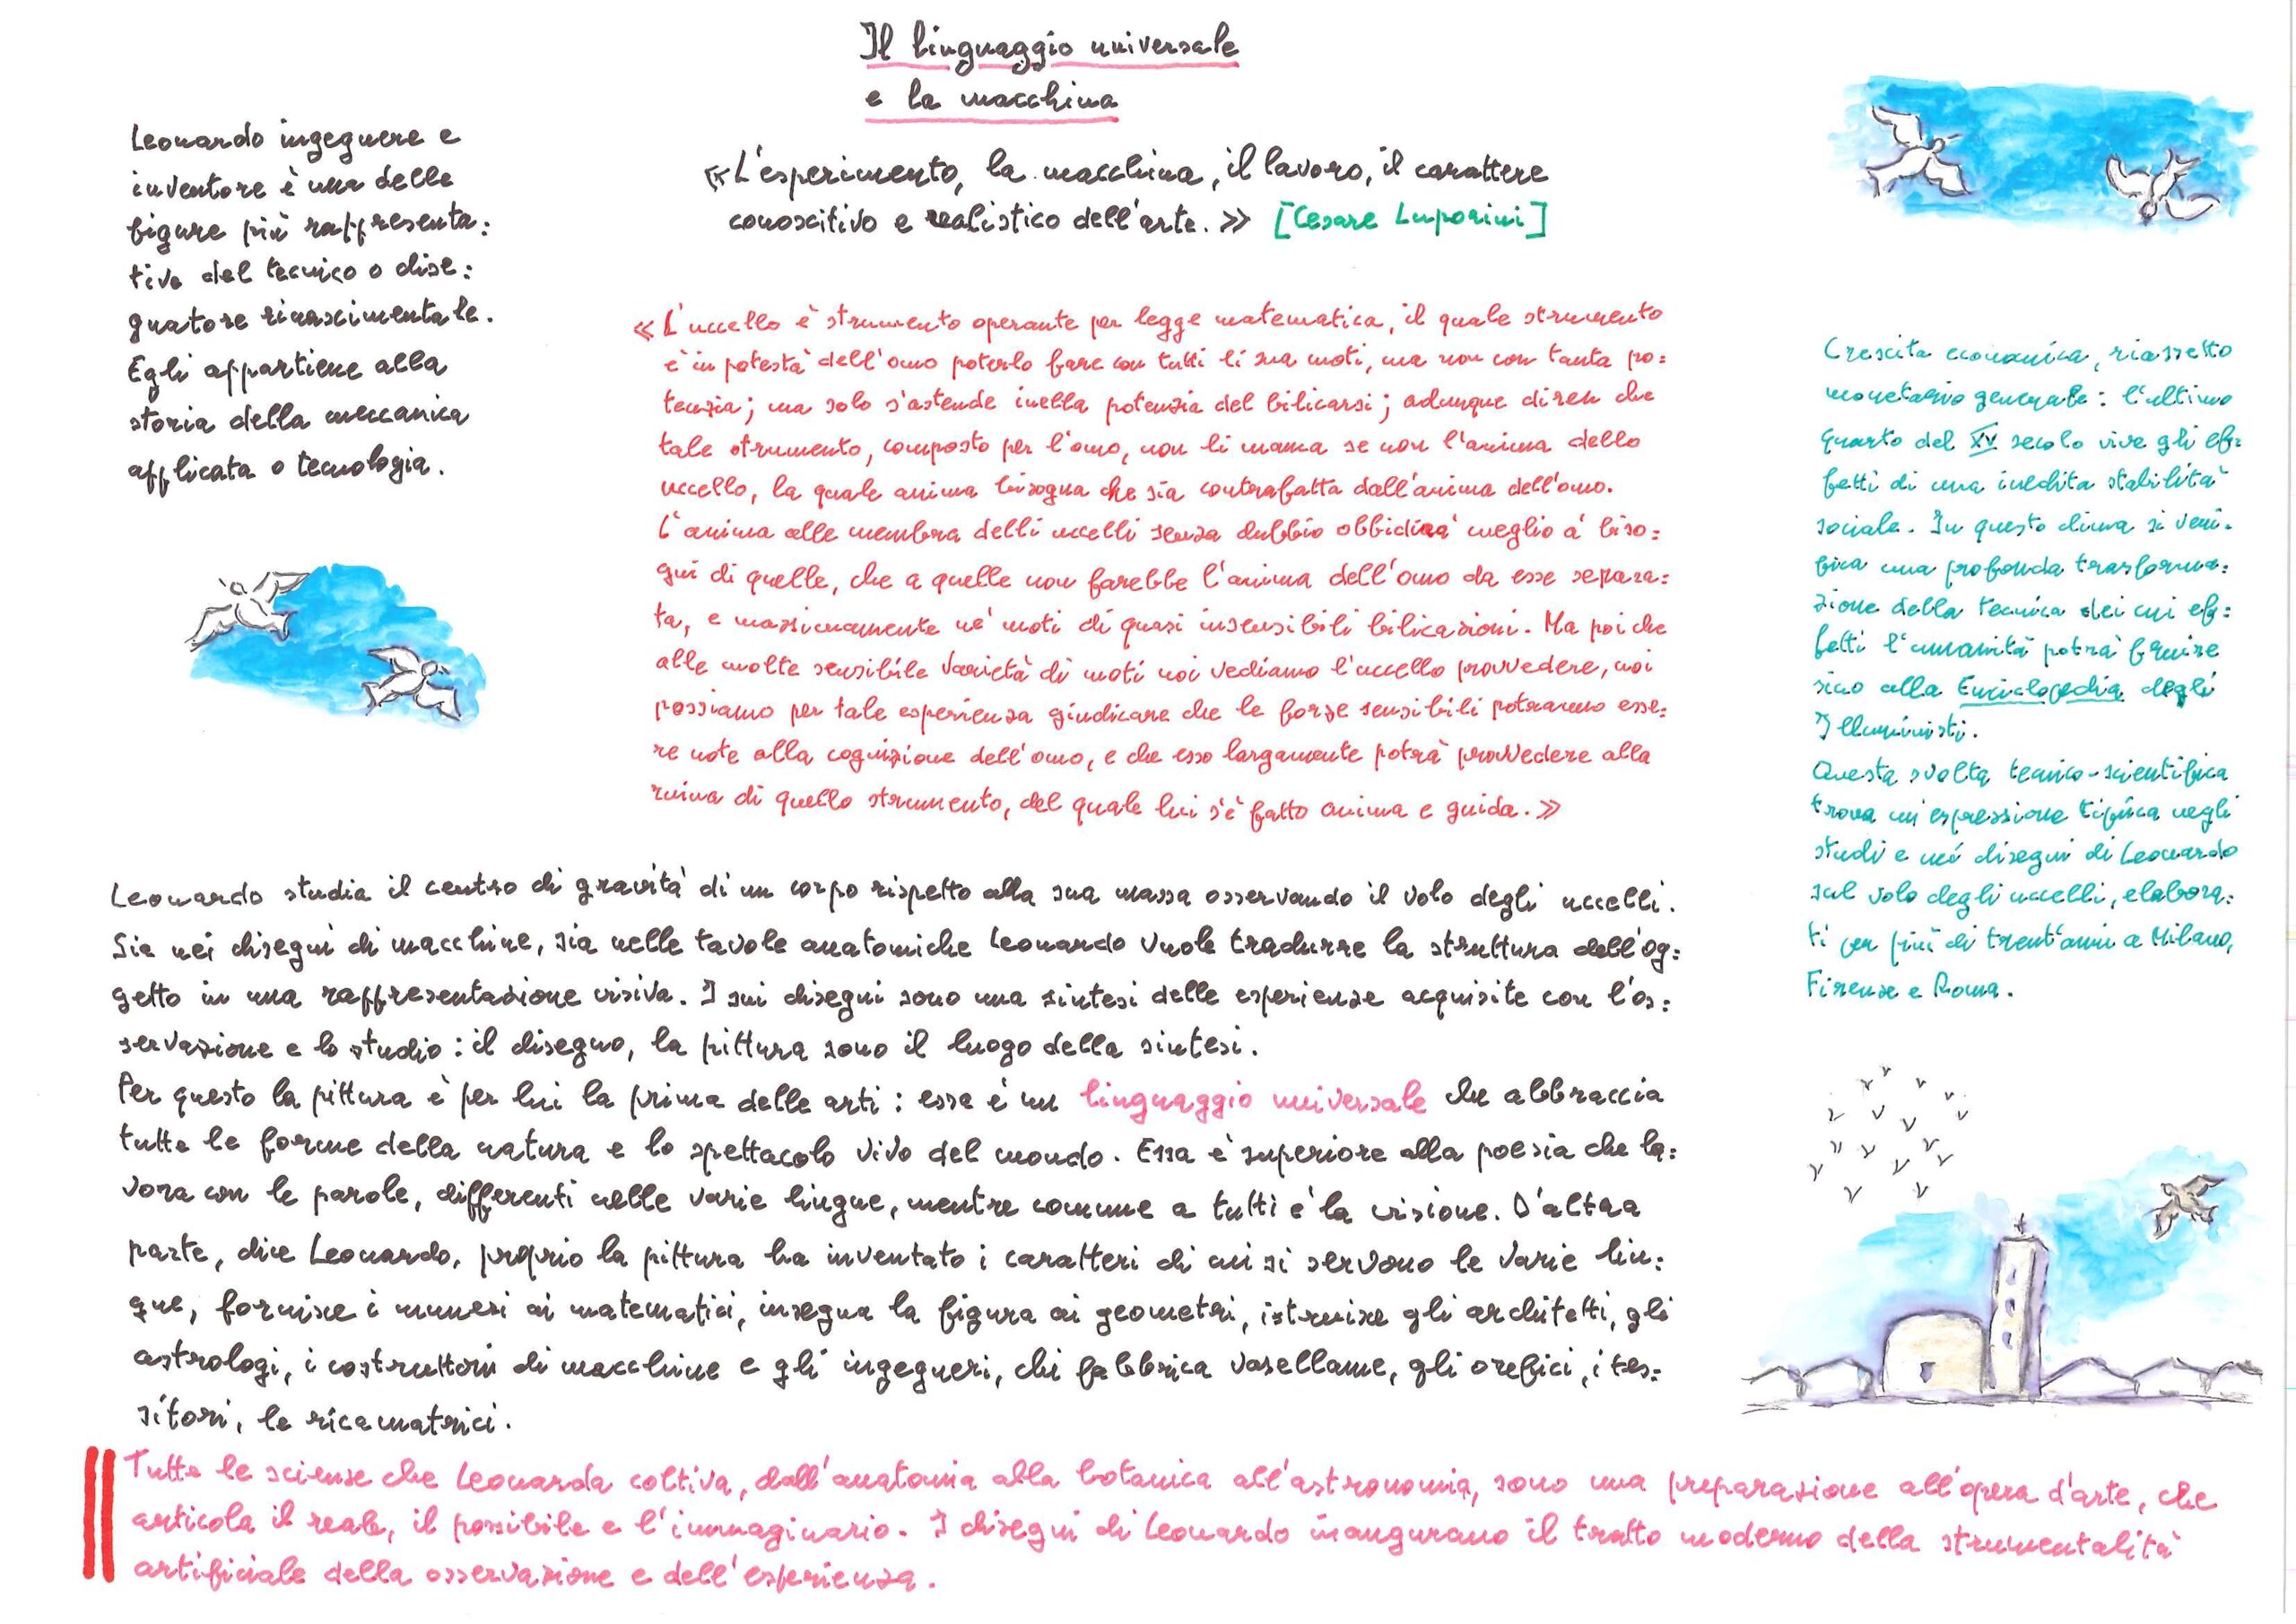 Il linguaggio universale
e la macchina
«L'esperimento, la macchina, il lavoro, il carattere
conoscitivo e realistico dell'arte.» [Cesare Luporini]
Leonardo ingegnere e
inventore è una delle
figure più rappresenta:
tive del tecnico o dise:
gnatore rinascimentale.
Egli appartiene alla
storia della meccanica
applicata o tecnologia.
«L'uccello è strumento operante per legge matematica, il quale strumento
è in potestà dell'omo poterlo fare con tutti li sua moti, ma non con tanta po:
tenzia; ma solo s'astende inella potenzia del bilicarsi; adunque diren che
tale strumento, composto per l'omo, non li manca se non l'anima dello
uccello, la quale anima bisogna che sia contrafatta dall'anima dell'omo.
L'anima alle membra delli uccelli senza dubbio obbidirà meglio a' biso:
gni di quelle, che a quelle non farebbe l'anima dell'omo da esse separa:
ta, e massimamente ne' moti di quasi insensibili bilicazioni. Ma poi che
alle molte sensibile varietà di moti noi vediamo l'uccello provvedere, noi
possiamo per tale esperienza giudicare che le forze sensibili potranno esse:
re note alla cognizione dell'omo, e che esso largamente potrà provvedere alla
ruina di quello strumento, del quale lui s'è fatto anima e guida.»
Crescita economica, riassetto
monetario generale: l'ultimo
quarto del XV secolo vive gli ef:
fetti di una inedita stabilità
sociale. In questo clima si veri-
fica una profonda trasforma:
zione della tecnica dei cui ef:
fetti l'umanità potrà fruire
sino alla Enciclopedia degli
Illuministi.
Questa svolta tecnico-scientifica
trova un'espressione tipica negli
studi e nei disegni di Leonardo
sul volo degli uccelli, elabora:
ti per più di trent'anni a Milano,
Firenze e Roma.
Leonardo studia il centro di gravità di un corpo rispetto alla sua massa osservando il volo degli uccelli.
Sia nei disegni di macchine, sia nelle tavole anatomiche Leonardo vuole tradurre la struttura dell'og:
getto in una rappresentazione visiva. I sui disegni sono una sintesi delle esperienze acquisite con l'os:
servazione e lo studio: il disegno, la pittura sono il luogo della sintesi.
Per questo la pittura è per lui la prima delle arti: essa è un linguaggio universale che abbraccia
tutte le forme della natura e lo spettacolo vivo del mondo. Essa è superiore alla poesia che la:
vora con le parole, differenti nelle varie lingue, mentre comune a tutti è la visione. D'altra
parte, dice Leonardo, proprio la pittura ha inventato i caratteri di cui si servono le varie lin:
gue, fornisce i numeri ai matematici, insegna la figura ai geometri, istruisce gli architetti, gli
astrologi, i costruttori di macchine e gli ingegneri, chi fabbrica vasellame, gli orefici, i tes:
sitori, le ricamatrici.
Tutte le scienze che Leonarda coltiva, dall'anatomia alla botanica all'astronomia, sono una preparazione all'opera d'arte, che
articola il reale, il possibile e l'immaginario. I disegni di Leonardo inaugurano il tratto moderno della strumentalità
artificiale della osservazione e dell'esperienza.